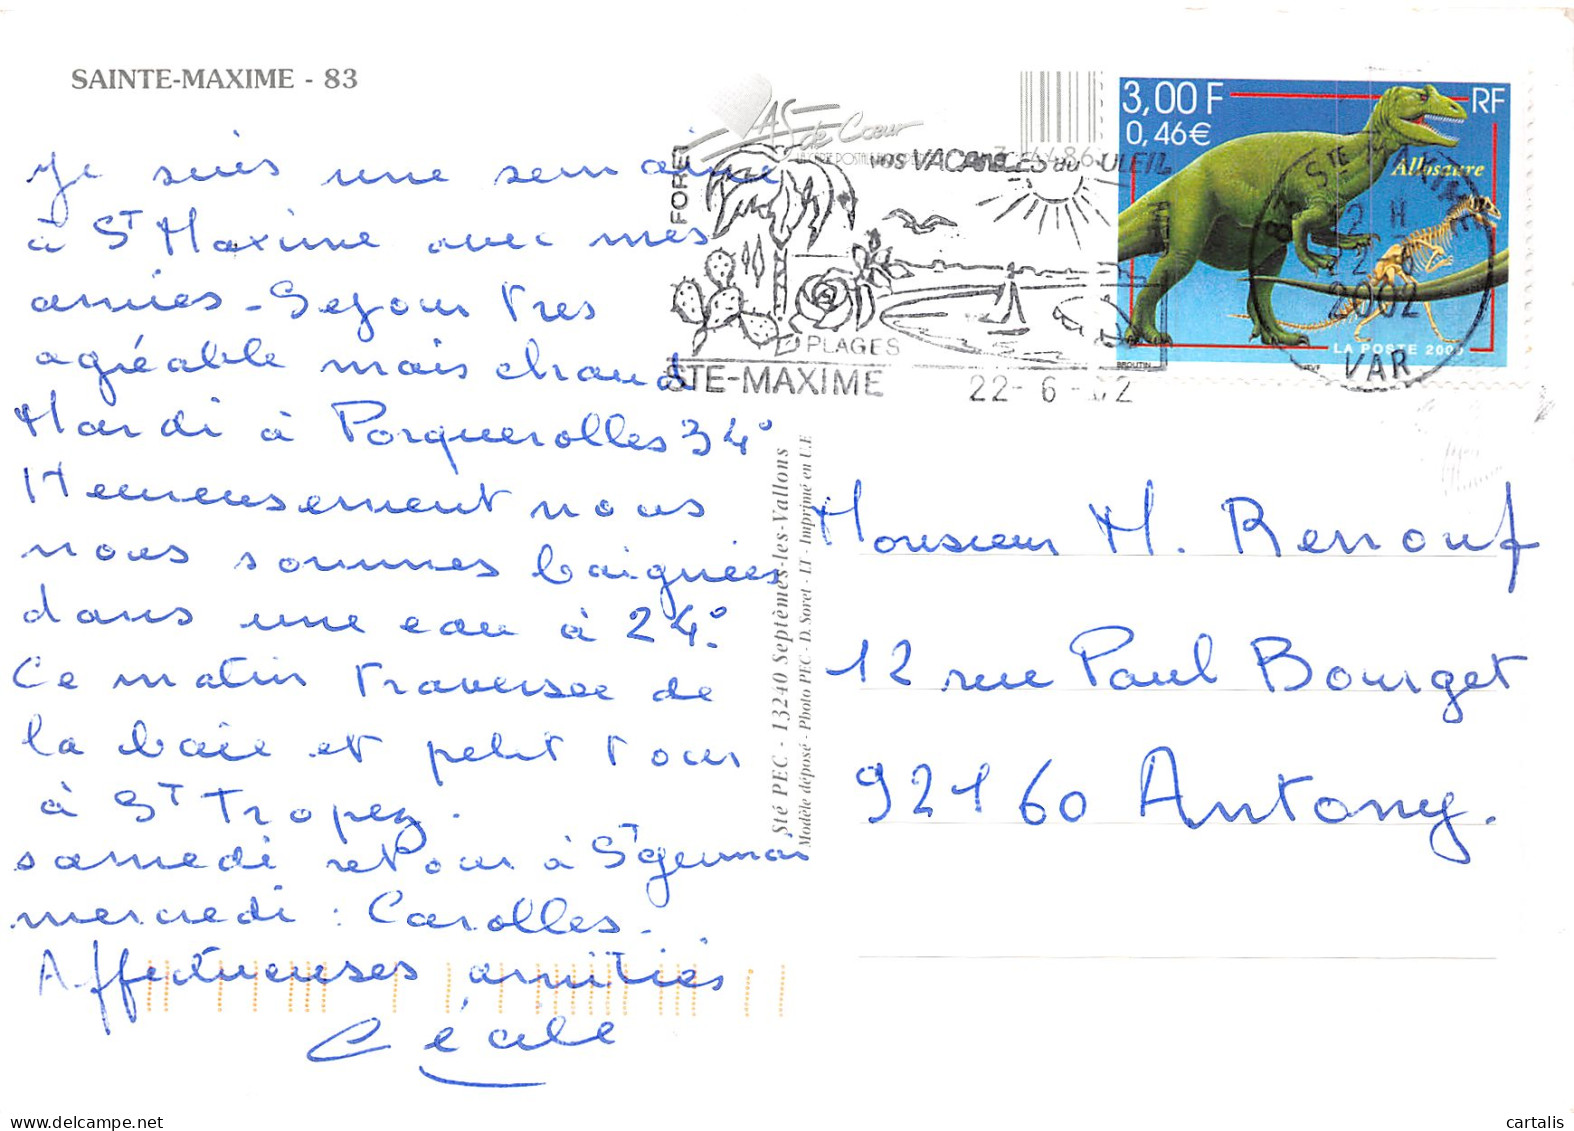 SAINTE-MAXIME - 83
Je suis une semaine
à St Maxime avec mes
amies - Sejour tres
agréable mais chaud
Mardi à Porquerolles 34°
Heureusement nous
nous sommes baignées
dans une eau à 24°.
Ce matin traversee de
la baie et petit tour
à St Tropez.
samedi retour à St germain
mercredi : Carolles.
Affectueuses amitiés
Cécile
AS de Cœur
FORET
VOS VACANCES au SOLEIL
PLAGES
STE-MAXIME
22-6-02
3,00 F
0,46€
RF
Allosaure
LA POSTE 2000
83 STE MAXIME
12 H
22 6
2002
VAR
Sté PEC - 13240 Septèmes-les-Vallons
Modèle déposé - Photo PEC - D. Soret - LT - Imprimé en U.E
Monsieur M. Renouf
12 rue Paul Bourget
92160 Antony.
cartalis